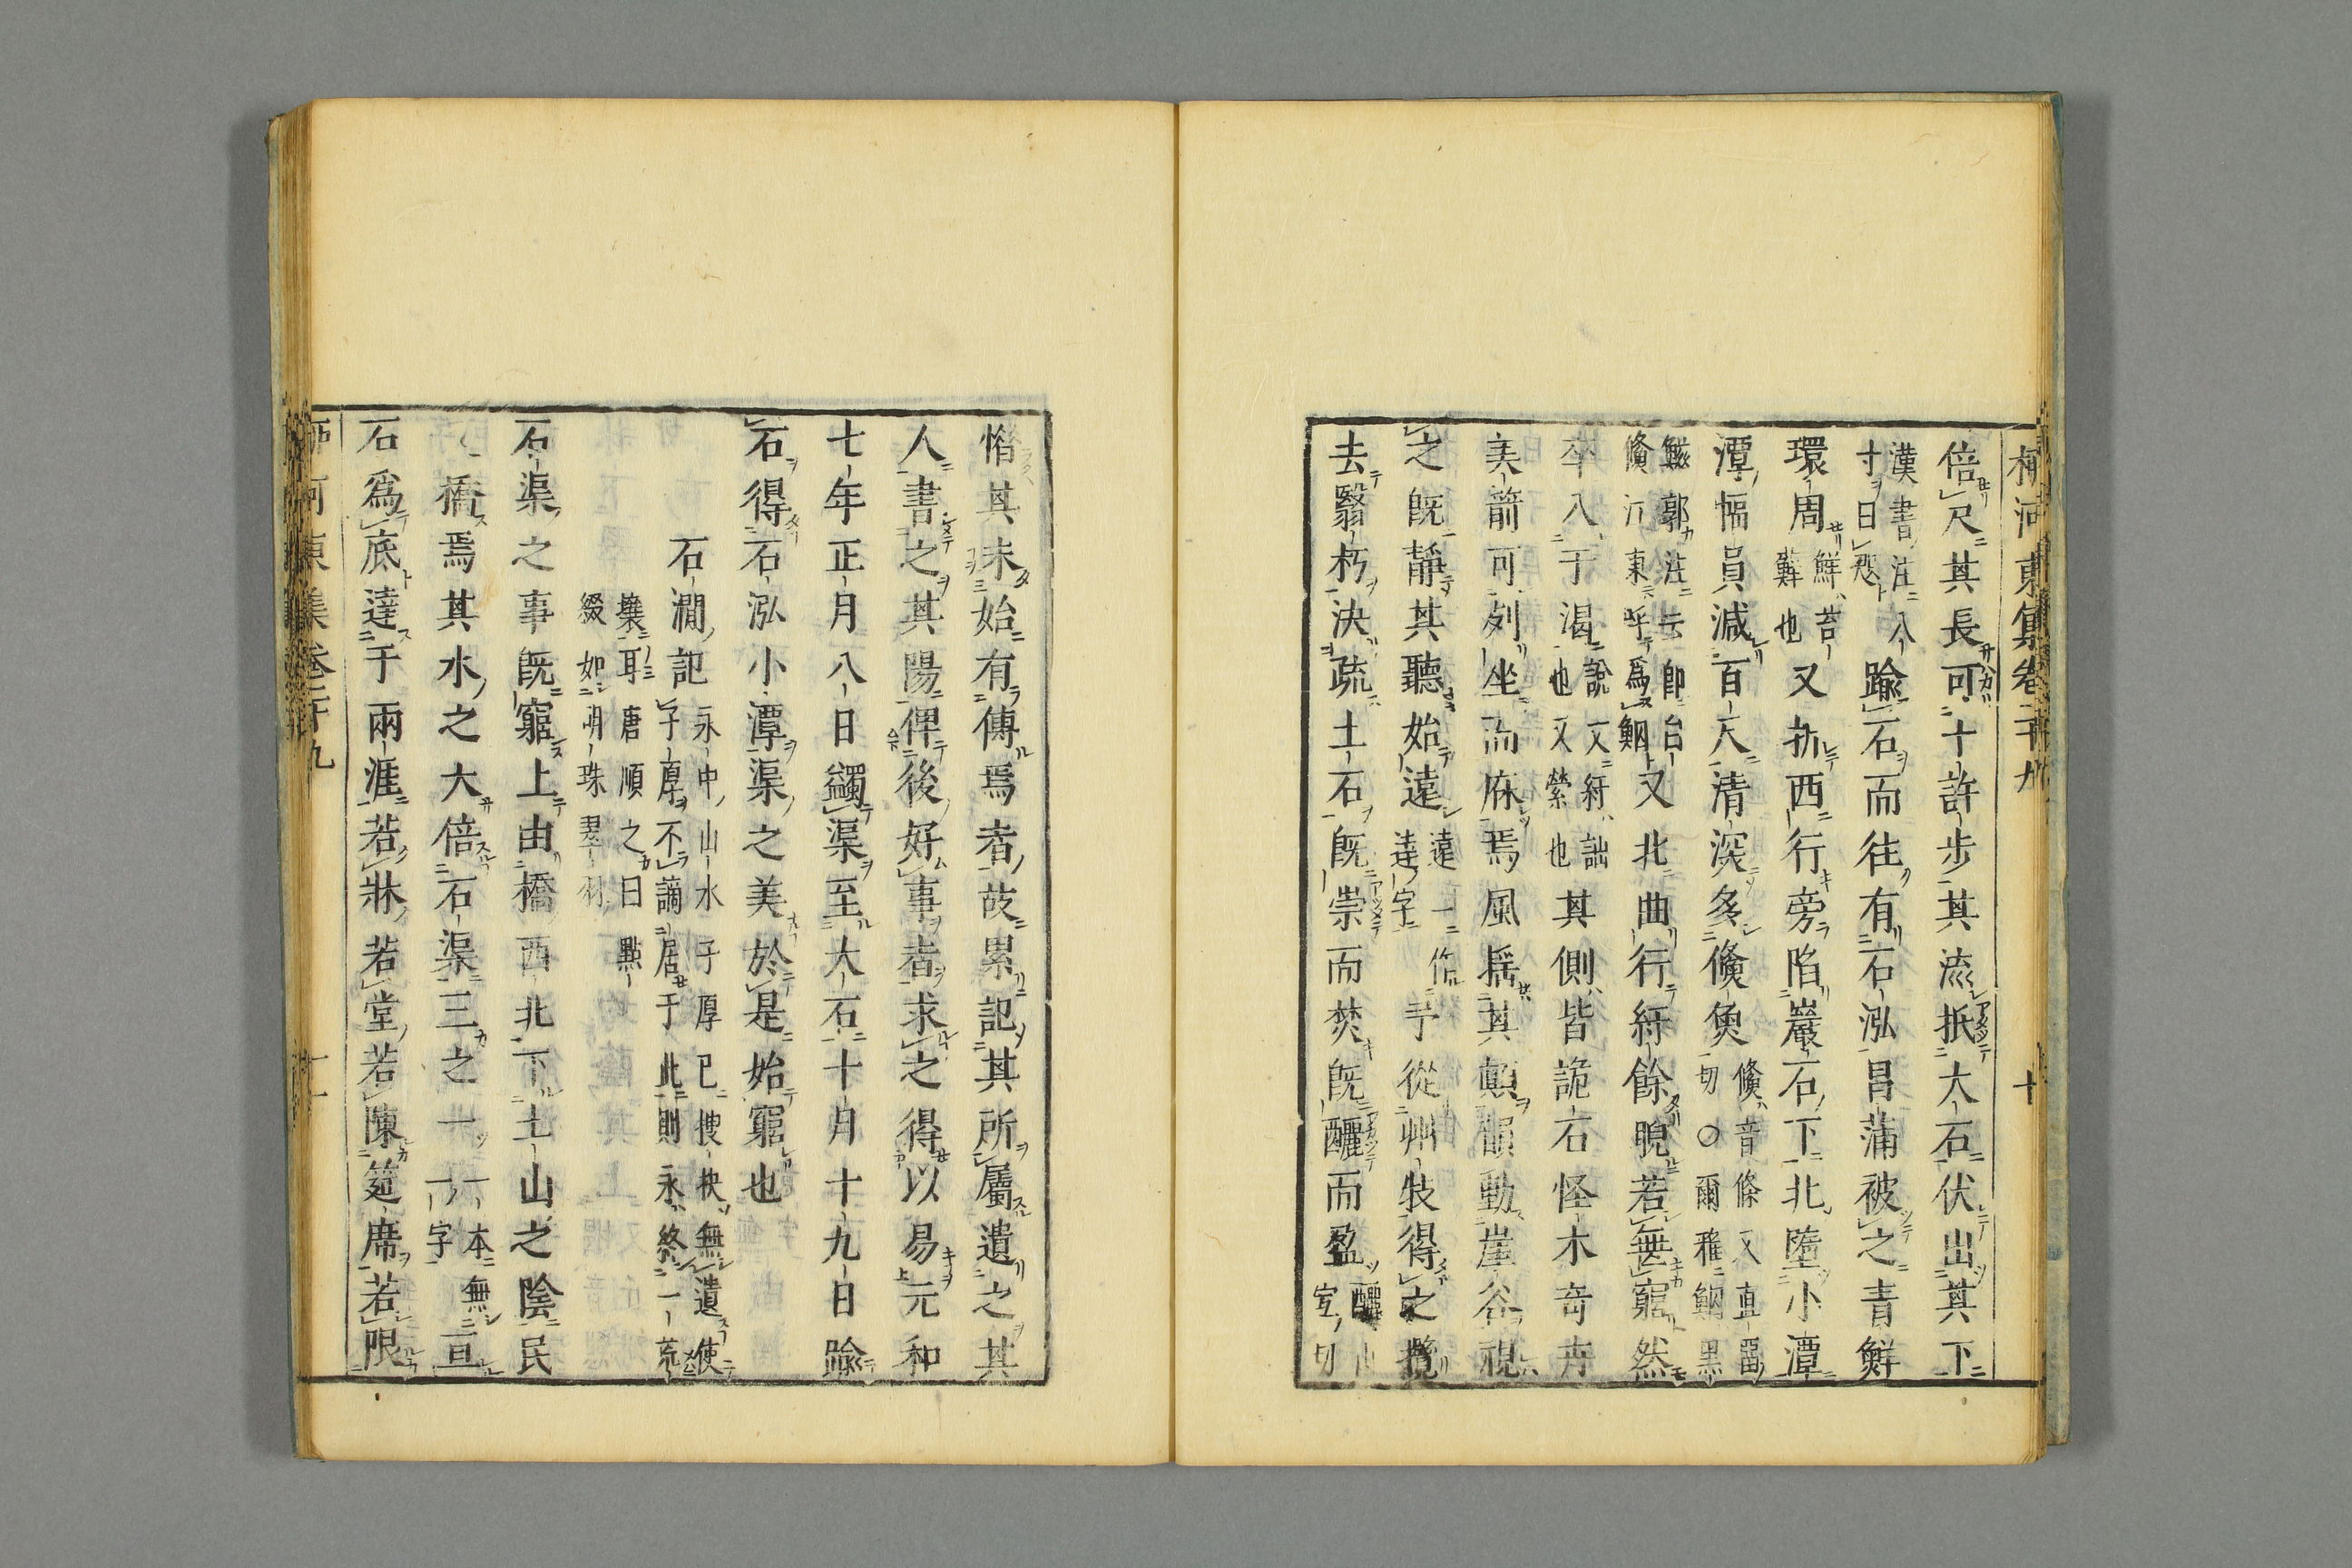 柳河東集卷二十九 十
倍尺其長可十許步其流抵大石伏出其下
漢書注八寸曰咫踰石而往有石泓昌蒲被之青鮮
環周鮮苔蘚也又折西行旁陷巖石下北墮小潭
潭幅員減百尺清深多鯈魚鯈音條又直留切○爾雅鮂黑
鰦郭注云卽白鯈江東呼爲鮂又北曲行紆餘睨若無窮然
卒入于渴說文紆詘也又縈也其側皆詭石怪木奇卉
美箭可列坐而庥焉風搖其顚韻動崖谷視
之旣靜其聽始遠遠一作達字予從州牧得之攬
去翳朽決疏土石旣崇而焚旣釃而盈釃山宜切
惜其未始有傳焉者故累記其所屬遺之其
人書之其陽俾後好事者求之得以易元和
七年正月八日蠲渠至大石十月十九日踰
石得石泓小潭渠之美於是始窮也
石澗記永中山水子厚已搜抉無遺使子厚不謫居于此則永終一荒
壤耳唐順之曰點綴如明珠翠羽
石渠之事旣窮上由橋西北下土山之陰民
又橋焉其水之大倍石渠三之一一本無一字亘
石爲底達于兩涯若牀若堂若陳筵席若限
柳河東集卷二十九 十一